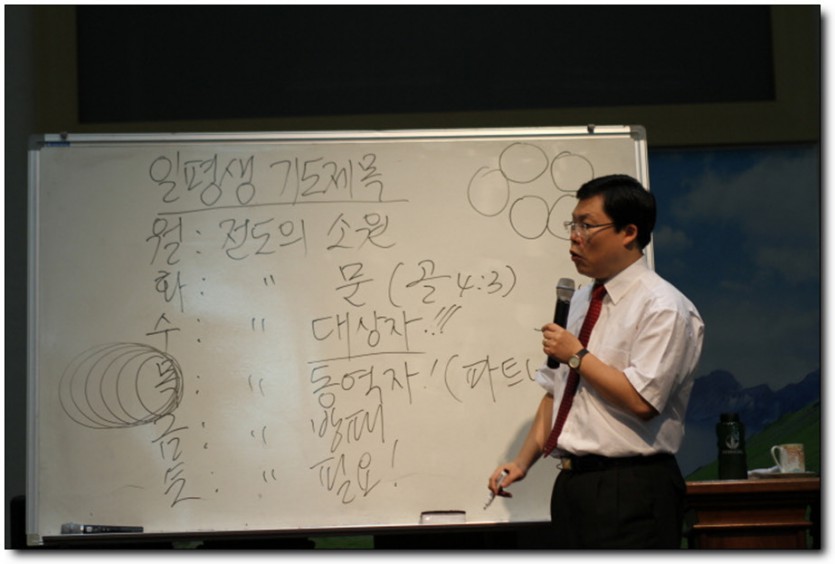 일평생 기도제목
월: 전도의 소원
화: " 문 (골 4:3)
수: " 대상자!!!
목: " 동역자! (파트너
금: " 방패
토: " 필요!